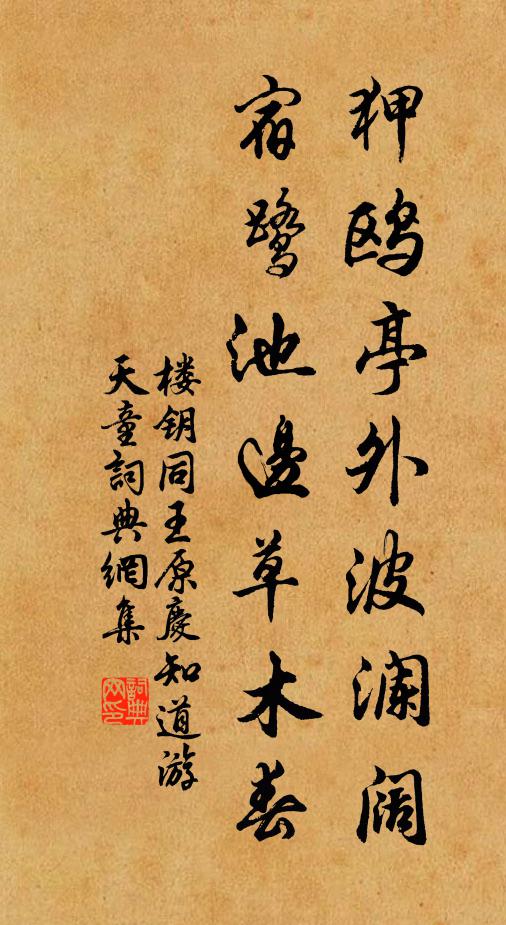 狎鸥亭外波澜阔
宿鹭池邊草木春
楼钥同王原庆知道游
天童詞典網集
詞典網印